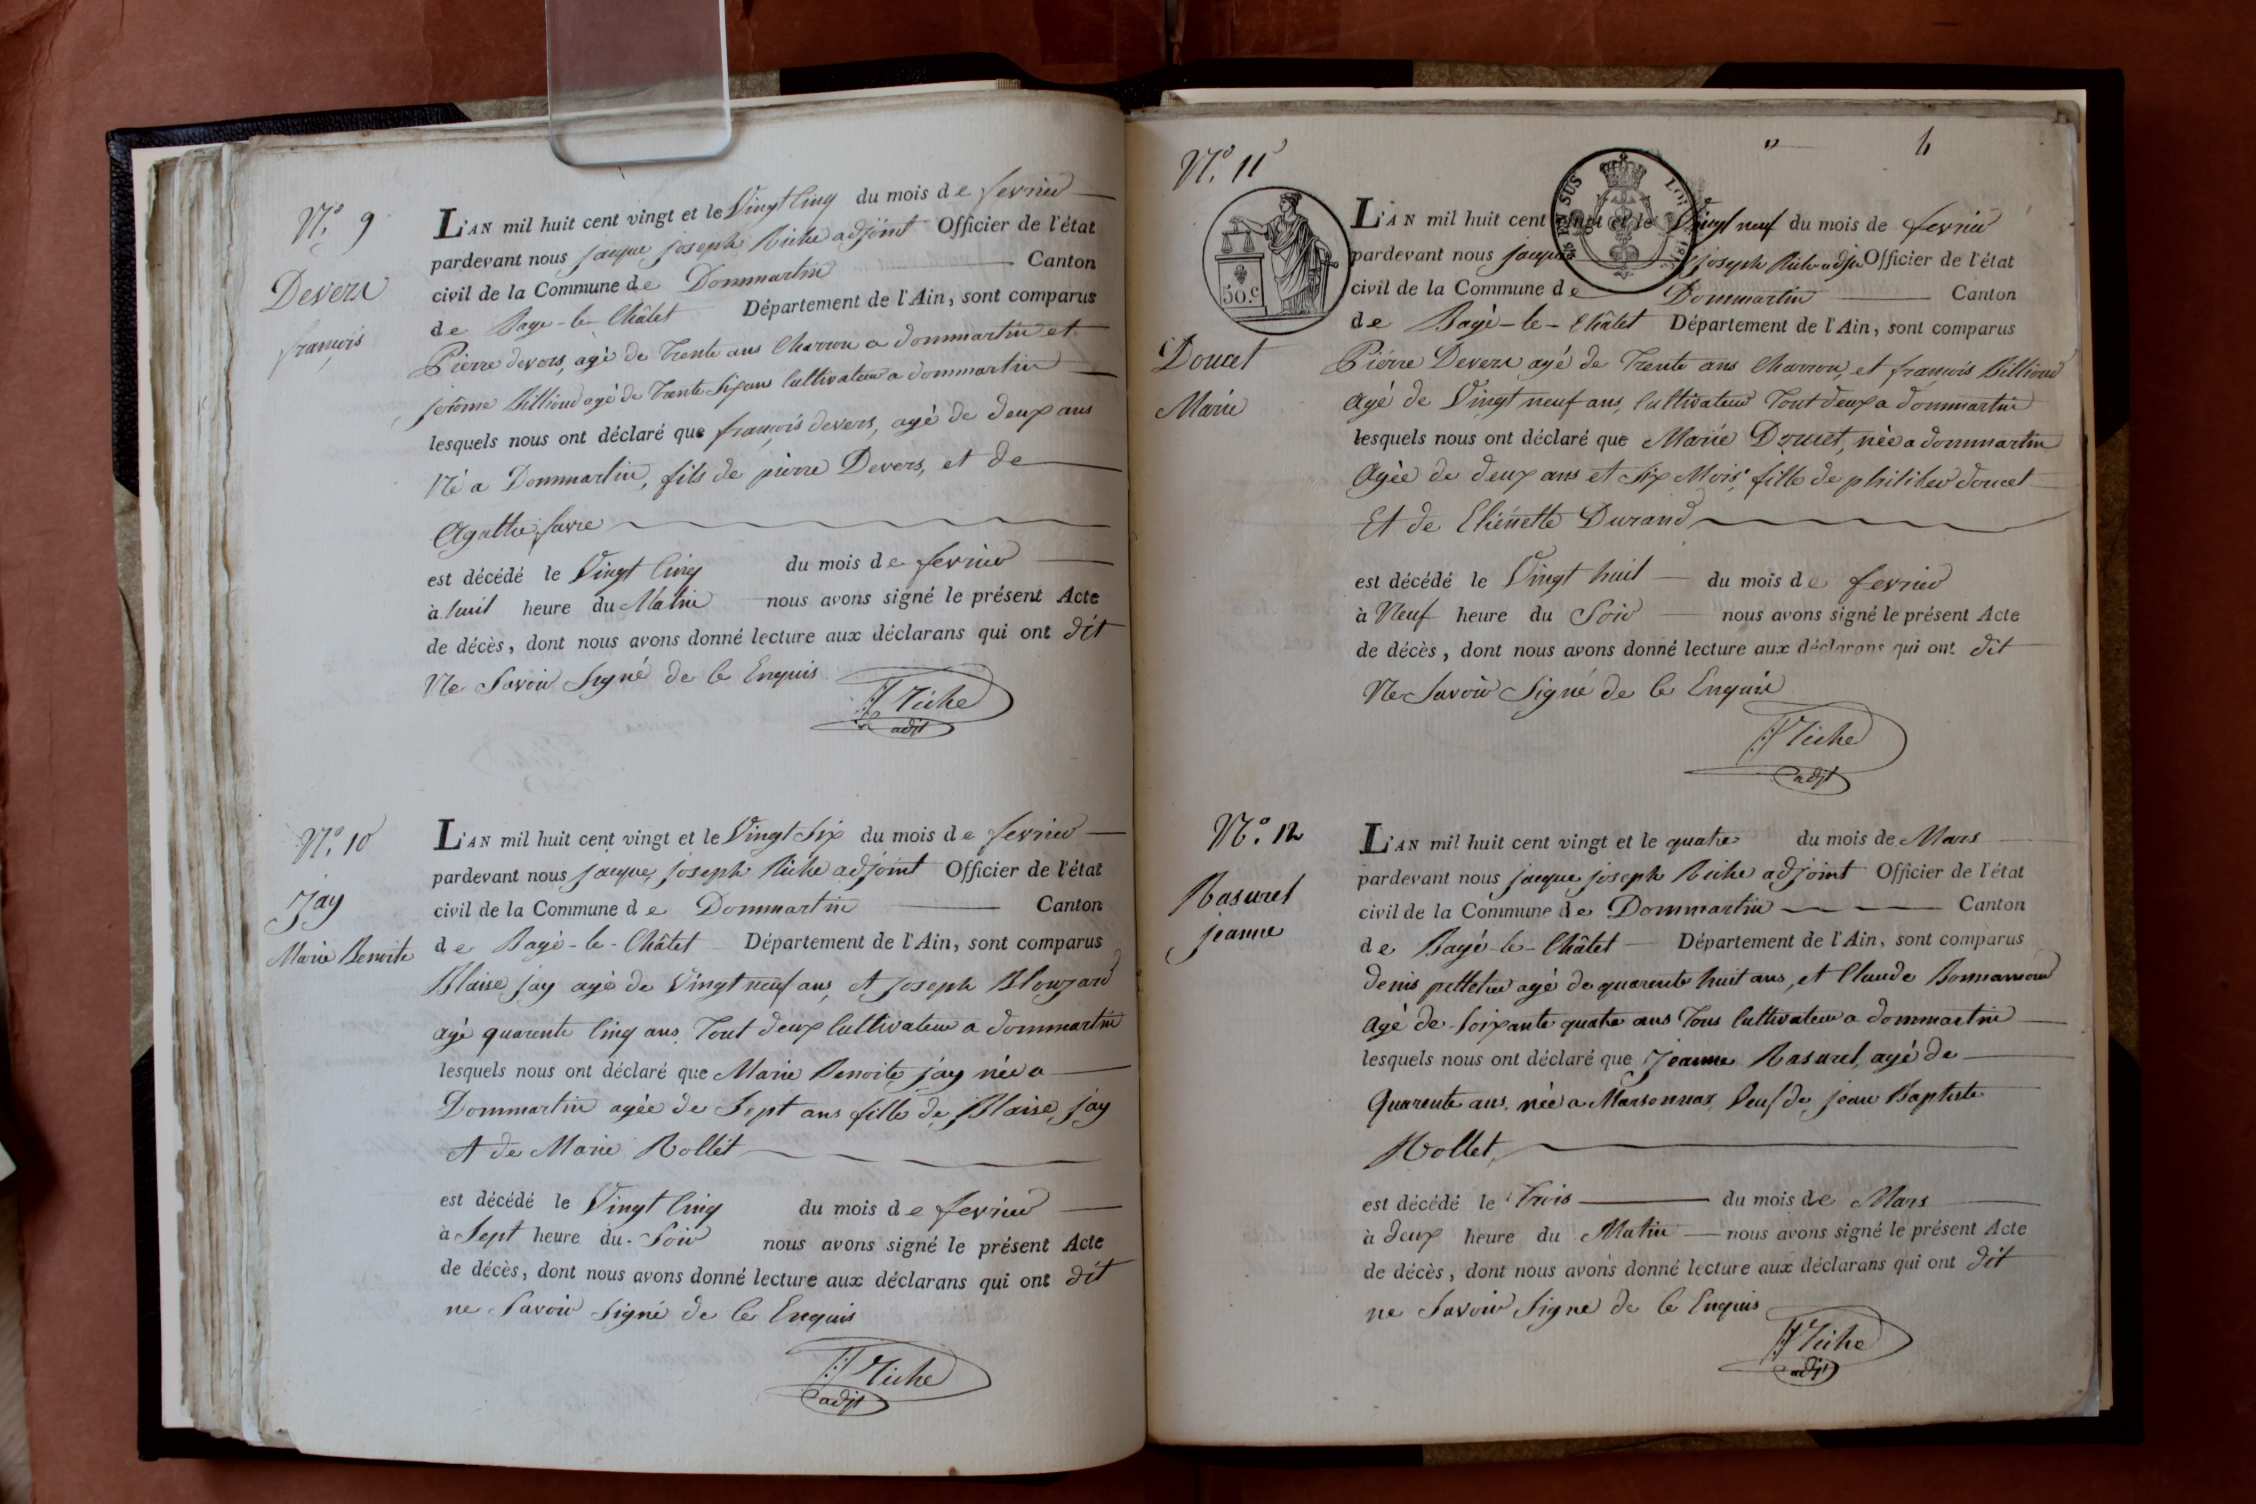 N.° 9
Devers
françois
L'AN mil huit cent vingt et le Vingt Cinq du mois de fevrier
pardevant nous jacque joseph Riche adjoint Officier de l'état
civil de la Commune de Dommartin Canton
de Bagé-le-Châtel Département de l'Ain, sont comparus
Pierre devers, agé de Trente ans Charron a dommartin et
jérôme Billioud agé de Trente Six ans Cultivateur a dommartin
lesquels nous ont déclaré que françois devers, agé de deux ans
Né a Dommartin, fils de pierre Devers, et de
Agathe favre
est décédé le Vingt Cinq du mois de fevrier
à huit heure du Matin nous avons signé le présent Acte
de décès, dont nous avons donné lecture aux déclarans qui ont dit
Ne Savoir Signé de ce Enquis
Riche
adjt
N.° 10
Jay
Marie Benoite
L'AN mil huit cent vingt et le Vingt Six du mois de fevrier
pardevant nous jacque joseph Riche adjoint Officier de l'état
civil de la Commune de Dommartin Canton
de Bagé-le-Châtel Département de l'Ain, sont comparus
Blaise jay agé de Vingt neuf ans, et joseph Blouzard
agé quarente Cinq ans, Tout deux Cultivateur a dommartin
lesquels nous ont déclaré que Marie Benoite jay née a
Dommartin agée de Sept ans fille de Blaise jay
et de Marie Rollet
est décédé le Vingt Cinq du mois de fevrier
à Sept heure du Soir nous avons signé le présent Acte
de décès, dont nous avons donné lecture aux déclarans qui ont dit
ne Savoir Signé de ce Enquis
Riche
adjt
N.° 11
50.c
SUS
Doucet
Marie
L'AN mil huit cent vingt et le Vingt neuf du mois de fevrier
pardevant nous jacque joseph Riche adjt Officier de l'état
civil de la Commune de Dommartin Canton
de Bagé-le-Châtel Département de l'Ain, sont comparus
Piérre Devers agé de Trente ans Charron, et françois Billioud
Agé de Vingt neuf ans, Cultivateur Tout deux a dommartin
lesquels nous ont déclaré que Marie Doucet, née a dommartin
Agée de deux ans et Six Mois, fille de philiber doucet
Et de Etiénette Durand
est décédé le Vingt huit du mois de fevrier
à Neuf heure du Soir nous avons signé le présent Acte
de décès, dont nous avons donné lecture aux déclarans qui ont dit
Ne Savoir Signé de ce Enquis
Riche
adjt
N.° 12
Rasurel
jeanne
L'AN mil huit cent vingt et le quatre du mois de Mars
pardevant nous jacque joseph Riche adjoint Officier de l'état
civil de la Commune de Dommartin Canton
de Bagé-le-Châtel Département de l'Ain, sont comparus
denis pelletier agé de quarente huit ans, et Claude
Agé de Soixante quatre ans Tous Cultivateur a dommartin
lesquels nous ont déclaré que Jeanne Rasurel, agé de
Quarente ans, née a Marsonnas, Veuf de jean Baptiste
Rollet,
est décédé le Trois du mois de Mars
à deux heure du Matin nous avons signé le présent Acte
de décès, dont nous avons donné lecture aux déclarans qui ont dit
ne Savoir Signe de ce Enquis
Riche
adjt